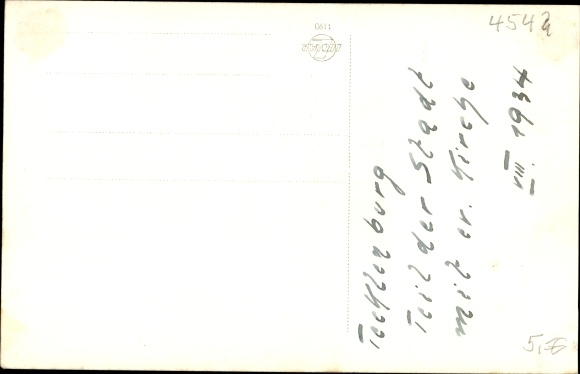 4542
Tecklenburg
Teil der Stadt
mit ev. Kirche
VIII. 1934
5,-